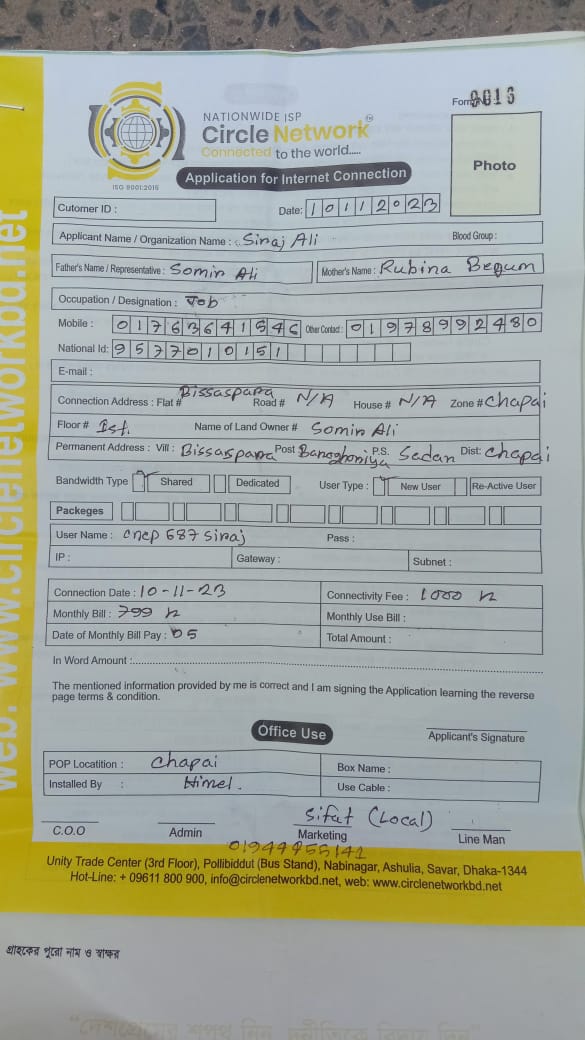 Form 0016
NATIONWIDE ISP
Circle Network
Connected to the world.....
ISO 9001:2015
Photo
Application for Internet Connection
Cutomer ID :
Date: 10112023
Applicant Name / Organization Name : Siraj Ali Blood Group :
Father's Name / Representative : Somin Ali Mother's Name : Rubina Begum
Occupation / Designation : Job
Mobile : 01763641546 Other Contact : 01978992480
National Id: 9577010151
E-mail :
Connection Address : Flat # Bissaspara Road # N/A House # N/A Zone # Chapai
Floor # 1st. Name of Land Owner # Somin Ali
Permanent Address : Vill : Bissaspara Post Baraghoriya P.S. Sadar Dist: Chapai
Bandwidth Type Shared Dedicated User Type : New User Re-Active User
Packeges
User Name : cnep 687 siraj Pass :
IP : Gateway : Subnet :
Connection Date : 10-11-23 Connectivity Fee : 1000
Monthly Bill : 799 Monthly Use Bill :
Date of Monthly Bill Pay : 05 Total Amount :
In Word Amount :
The mentioned information provided by me is correct and I am signing the Application learning the reverse
page terms & condition.
Office Use
Applicant's Signature
POP Locatition : Chapai Box Name :
Installed By : Himel. Use Cable :
Sifat (Local)
C.O.O Admin Marketing Line Man
Unity Trade Center (3rd Floor), Pollibiddut (Bus Stand), Nabinagar, Ashulia, Savar, Dhaka-1344
Hot-Line: + 09611 800 900, info@circlenetworkbd.net, web: www.circlenetworkbd.net
web: www.circlenetworkbd.net
গ্রাহকের পুরো নাম ও স্বাক্ষর